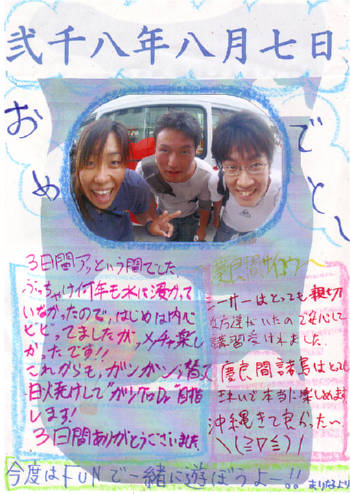 弐千八年八月七日
おめでと〜
3日間アッという間でした。
ぶっちゃけ何年も水に浸かって
いなかったので、はじめは内心
ビビってましたがメチャ楽し
かったです!!
これからも、ガンガン潜って
日焼けして"ガングロ。"目指
します!
3日間ありがとうございました。
慶良間サイコウ〜
一サーはとっても親切
な方達がいたので安心して
講習受けれました。
慶良間諸島はとても
きれいで本当に楽しめました
沖縄きて良かった〜
\(≧▽≦)/
今度はFUNで一緒に遊ぼうよー!!
まりなより